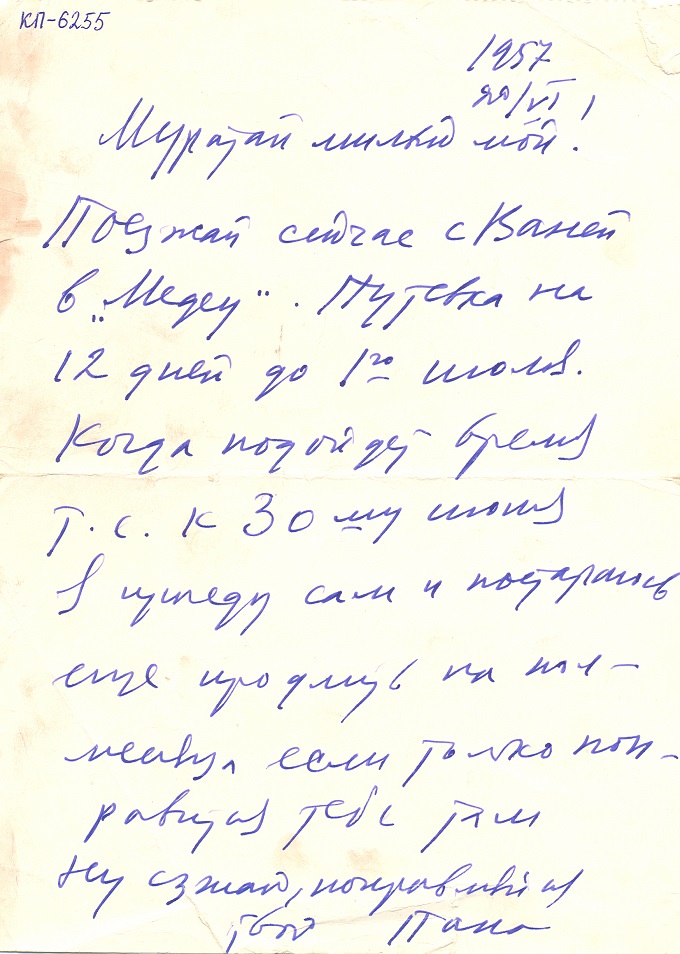 КП-6255
1957
20/VI
Муратай милый мой!
Поезжай сейчас с Ваней
в „Медеу". Путевка на
12 дней до 1го июля.
Когда подойдет время
т.е. к 30му июня
я приеду сам и постараюсь
еще продлить на пол-
месяца если только пон-
равится тебе там
Ну езжай, поправляйся
твой Папа